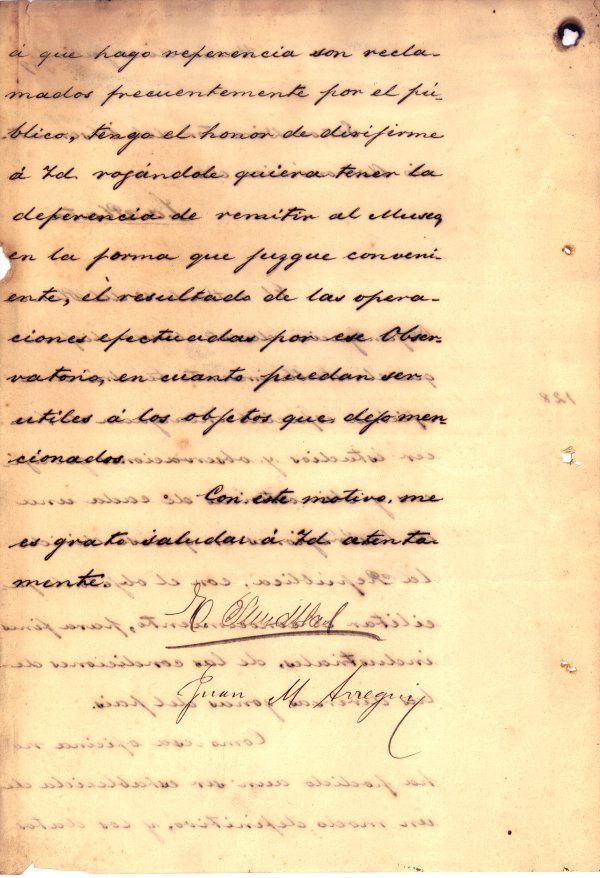 á que hago referencia son recla-
mados frecuentemente por el pú-
blico, tengo el honor de dirifirme
á Vd. rogándole quiera tener la
deferencia de remitir al Museo,
en la forma que juzgue conveni-
ente, el resultado de las opera-
ciones efectuadas por ese Obser-
vatorio, en cuanto puedan ser
utiles á los objetos que dejo men-
cionados.
Con este motivo, me
es grato saludar á Vd. atenta-
mente.
Juan M Arregui